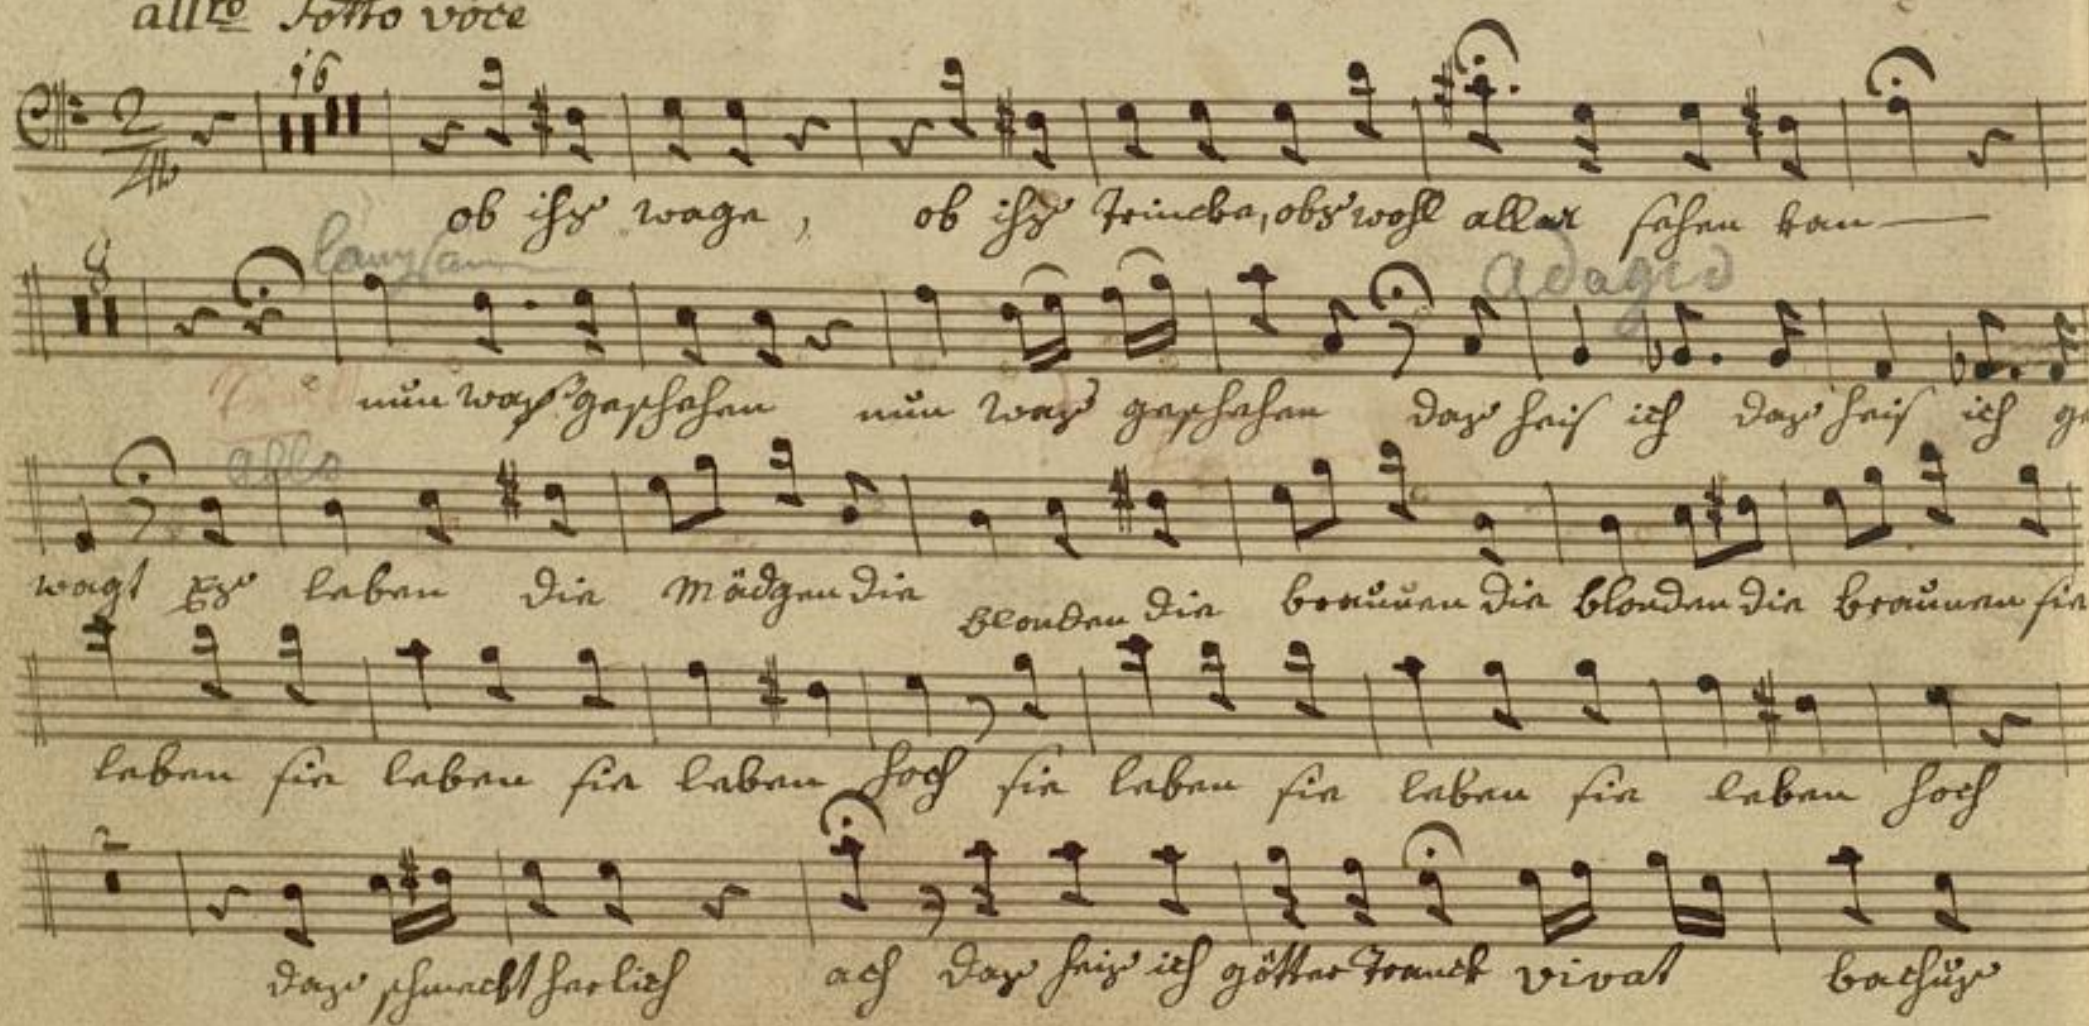 all:ro Sotto voce
16
2/4
ob ichs wage, ob ichs trincke, obs wohl allar sehen kan
8 langsam Adagio
nun waß geschehen nun waß geschehen das heis ich das heis ich ge
allo
wagt Es leben die Mädgen die blonden die braunen die blonden die braunen sie
leben sie leben sie leben hoch sie leben sie leben sie leben hoch
2
das schmeckt herlich ach das heis ich götter tranck vivat bachus